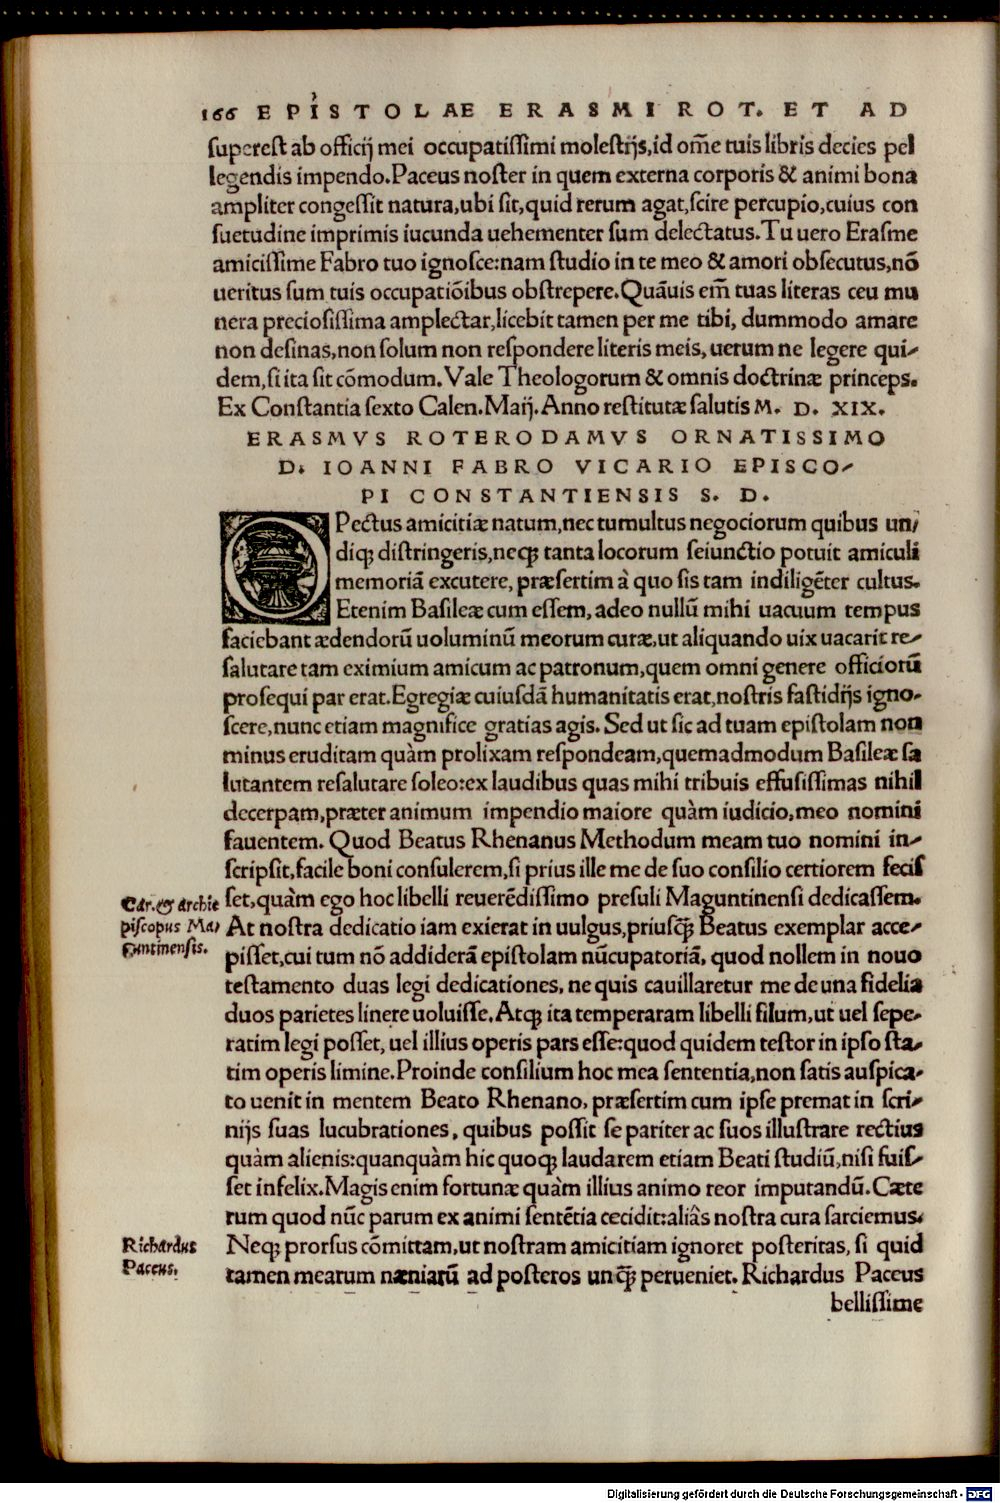 166 EPISTOLAE ERASMI ROT. ET AD
superest ab officij mei occupatissimi molestijs,id om̄e tuis libris decies pel
legendis impendo.Paceus noster in quem externa corporis & animi bona
ampliter congessit natura,ubi sit,quid rerum agat,scire percupio,cuius con
suetudine imprimis iucunda uehementer sum delectatus.Tu uero Erasme
amicissime Fabro tuo ignosce:nam studio in te meo & amori obsecutus,nō
ueritus sum tuis occupatiōibus obstrepere.Quāuis em̄ tuas literas ceu mu
nera preciosissima amplectar,licebit tamen per me tibi, dummodo amare
non desinas,non solum non respondere literis meis, uerum ne legere qui-
dem,si ita sit cōmodum. Vale Theologorum & omnis doctrinæ princeps.
Ex Constantia sexto Calen.Maij.Anno restitutæ salutis M. D. XIX.
ERASMVS ROTERODAMVS ORNATISSIMO
D. IOANNI FABRO VICARIO EPISCO-
PI CONSTANTIENSIS S. D.
OPectus amicitiæ natum,nec tumultus negociorum quibus un/
diqꝫ distringeris,neqꝫ tanta locorum seiunctio potuit amiculi
memoriā excutere, præsertim à quo sis tam indiligēter cultus.
Etenim Basileæ cum essem, adeo nullū mihi uacuum tempus
faciebant ædendorū uoluminū meorum curæ,ut aliquando uix uacarit re-
salutare tam eximium amicum ac patronum,quem omni genere officiorū
prosequi par erat.Egregiæ cuiusdā humanitatis erat,nostris fastidijs igno-
scere,nunc etiam magnifice gratias agis. Sed ut sic ad tuam epistolam non
minus eruditam quàm prolixam respondeam,quemadmodum Basileæ sa
lutantem resalutare soleo:ex laudibus quas mihi tribuis effusissimas nihil
decerpam,præter animum impendio maiore quàm iudicio,meo nomini
fauentem. Quod Beatus Rhenanus Methodum meam tuo nomini in-
scripsit,facile boni consulerem,si prius ille me de suo consilio certiorem fecis
set,quàm ego hoc libelli reuerēdissimo presuli Maguntinensi dedicassem.
Car.& archie
piscopus Ma/
guntinensis.
At nostra dedicatio iam exierat in uulgus,priusꝙ̄ Beatus exemplar acce-
pisset,cui tum nō addiderā epistolam nūcupatoriā, quod nollem in nouo
testamento duas legi dedicationes, ne quis cauillaretur me de una fidelia
duos parietes linere uoluisse. Atqꝫ ita temperaram libelli filum,ut uel sepe-
ratim legi posset, uel illius operis pars esse:quod quidem testor in ipso sta-
tim operis limine.Proinde consilium hoc mea sententia,non satis auspica-
to uenit in mentem Beato Rhenano, præsertim cum ipse premat in scri-
nijs suas lucubrationes, quibus possit se pariter ac suos illustrare rectius
quàm alienis:quanquàm hic quoqꝫ laudarem etiam Beati studiū,nisi fuis-
set infelix.Magis enim fortunæ quàm illius animo reor imputandū. Cæte
rum quod nūc parum ex animi sentētia cecidit:aliâs nostra cura sarciemus.
Richardus
Paceus.
Neqꝫ prorsus cōmittam,ut nostram amicitiam ignoret posteritas, si quid
tamen mearum næniarū ad posteros unꝙ̄ perueniet. Richardus Paceus
bellissime
Digitalisierung gefördert durch die Deutsche Forschungsgemeinschaft - DFG